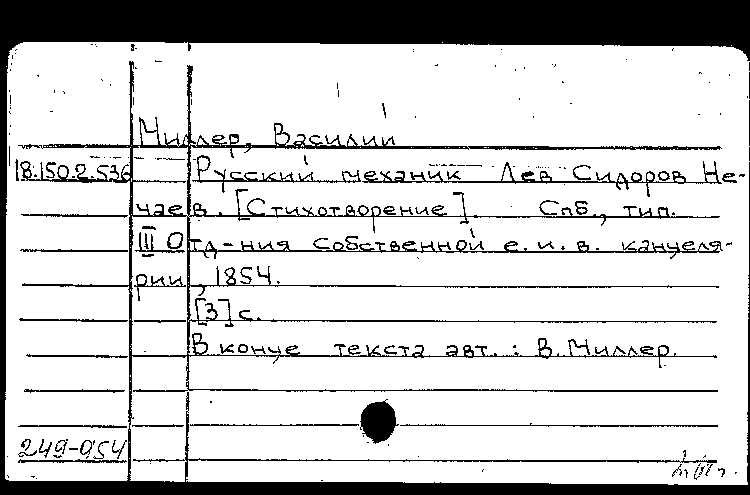 Миллер, Василий
18.150.2.536 Русский механик Лев Сидоров Не-
чаев. [Стихотворение]. Спб., тип.
III Отд-ния собственной е. и. в. канцеля-
рии, 1854.
[3] с.
В конце текста авт.: В. Миллер.
249-954